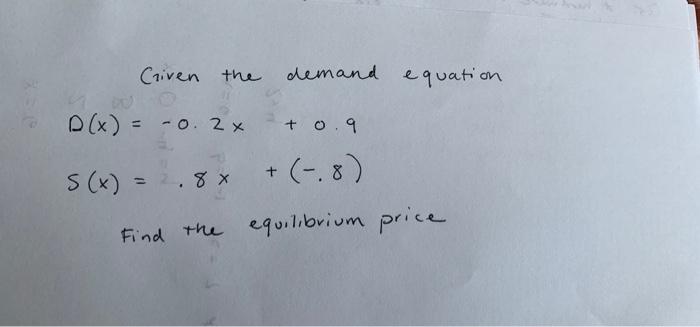 Given the demand equation
D(x) = -0.2x + 0.9
S(x) = .8x + (-.8)
Find the equilibrium price